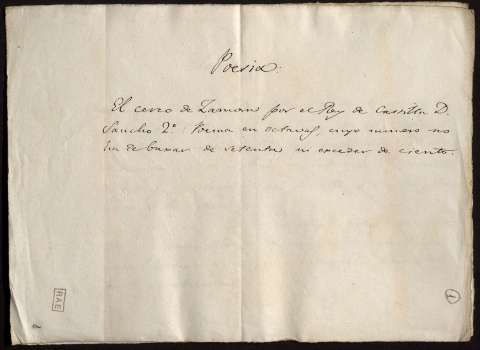 Poesia.
El cerco de Zamora por el Rey de Castilla D.
Sancho 2º. Poema en octavas, cuyo numero no
ha de baxar de setenta ni exceder de ciento.
RAE
1